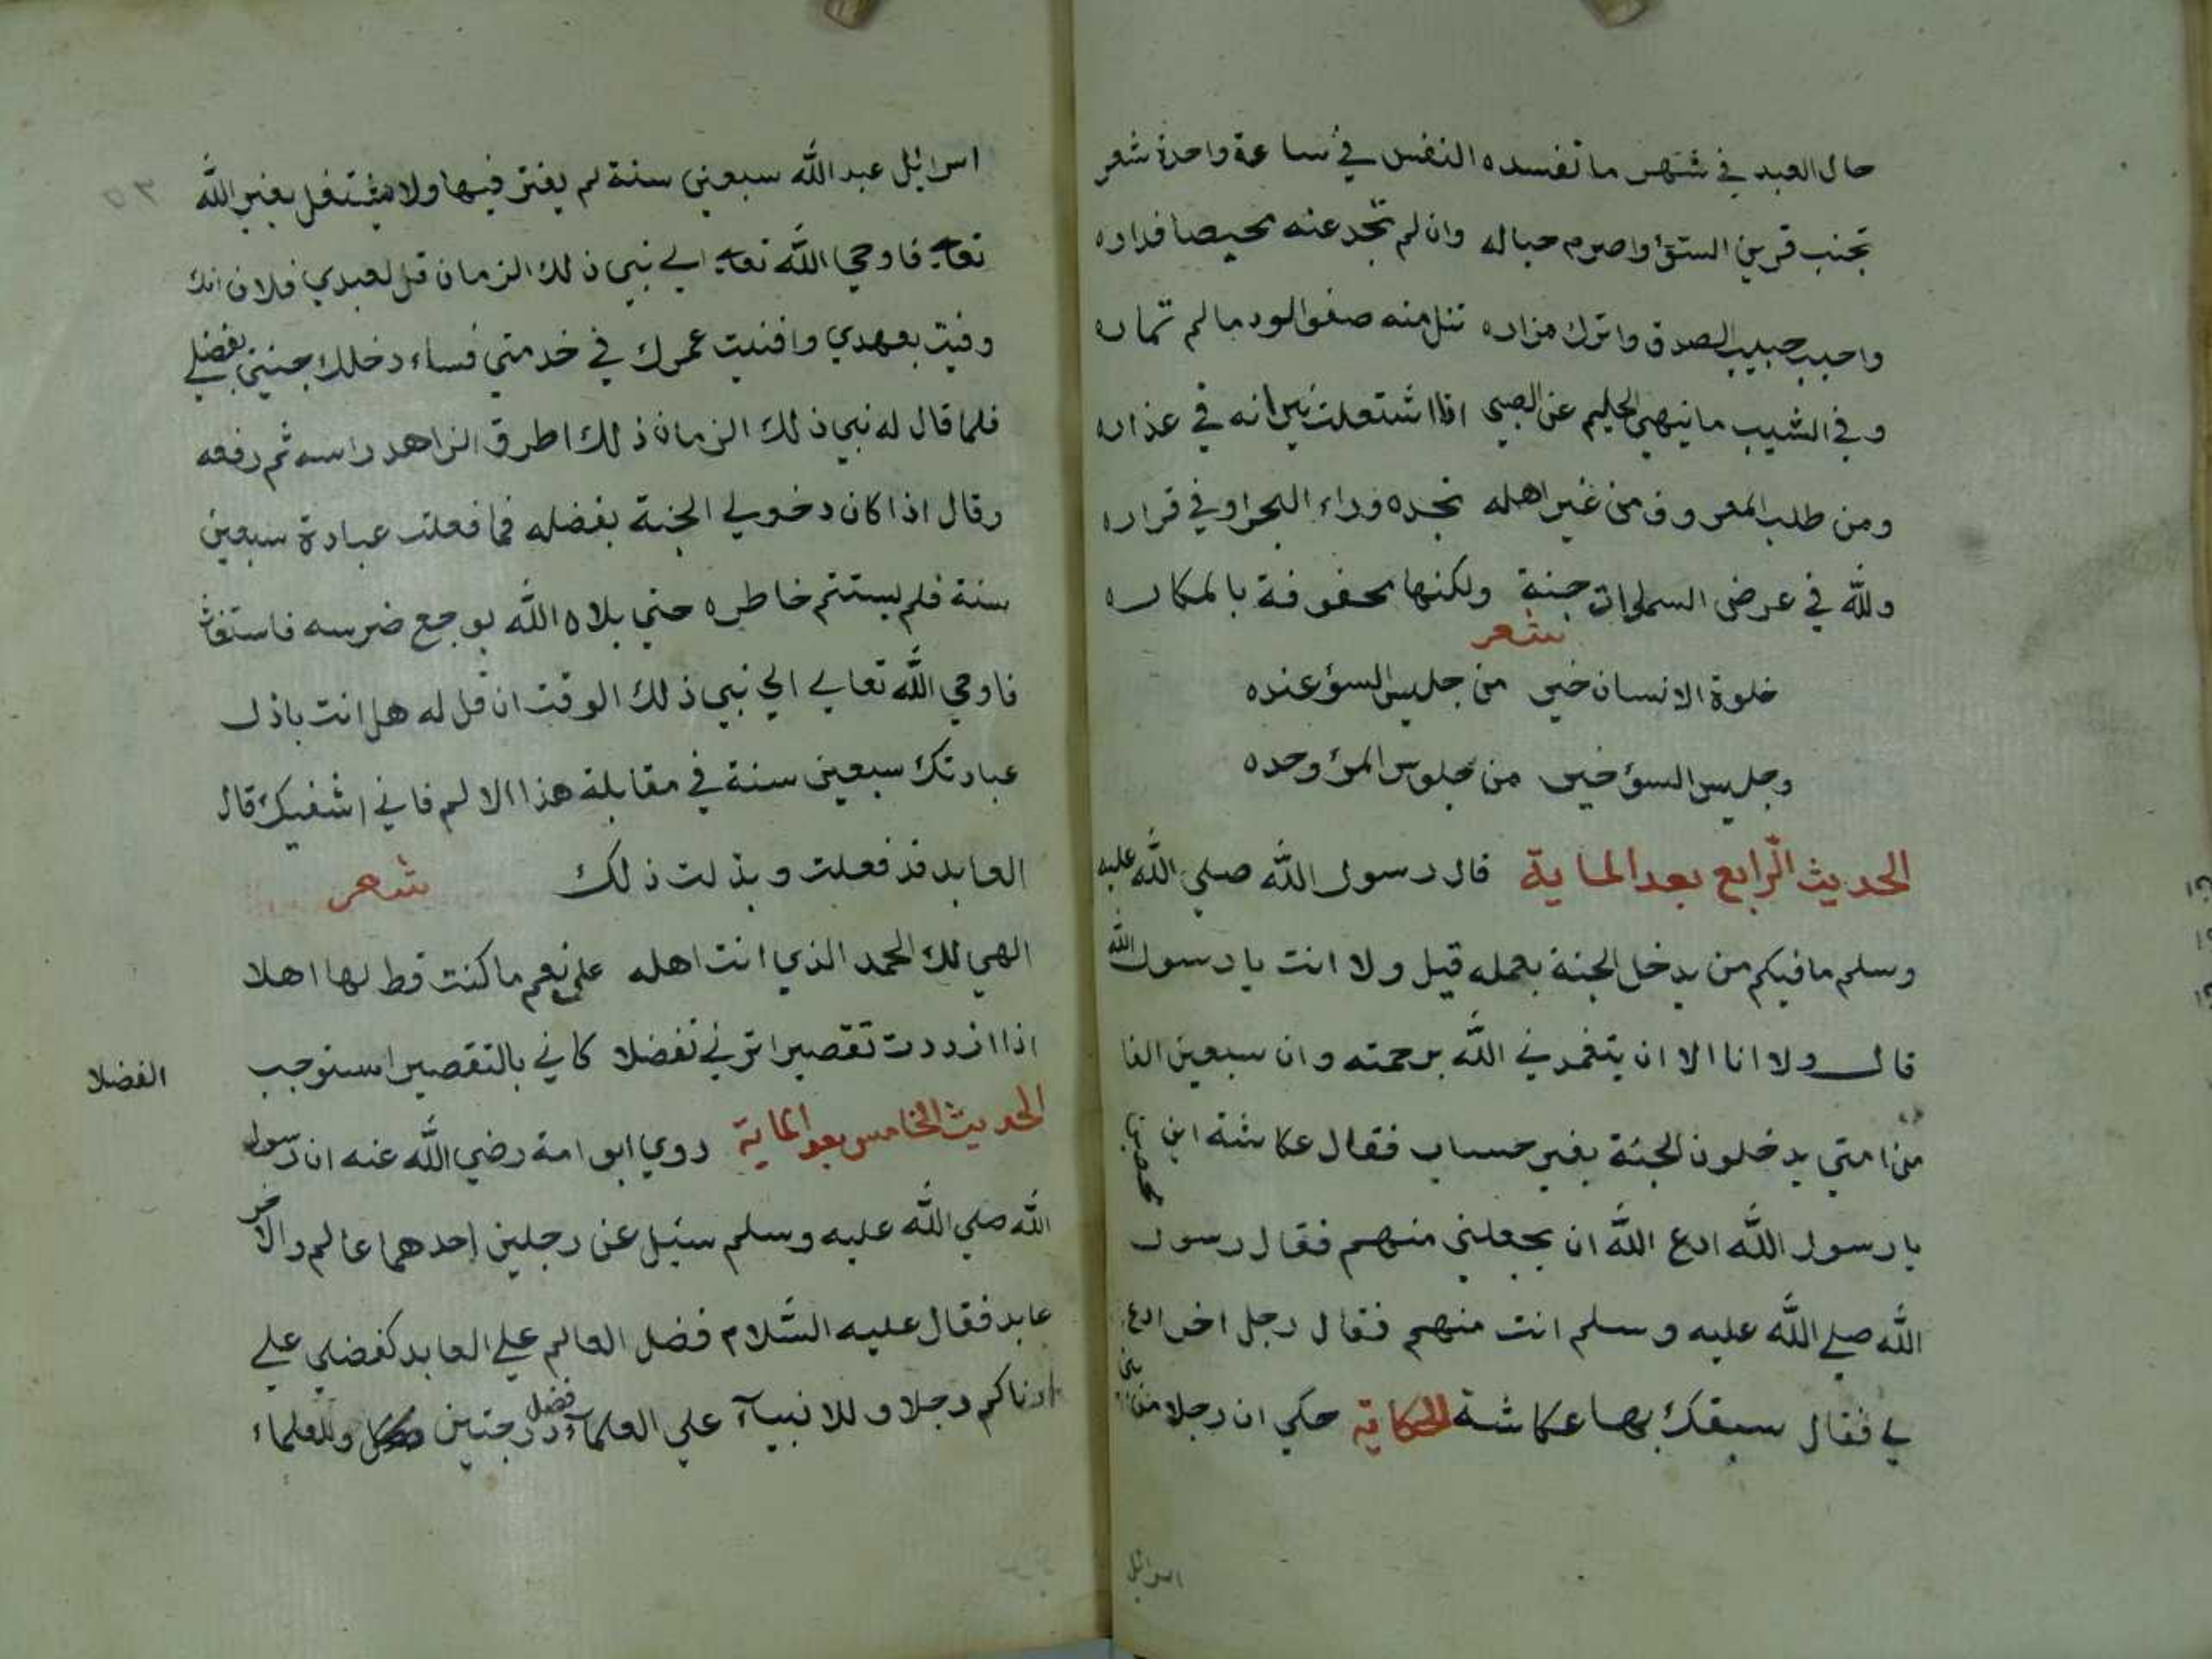 حال العبد في شهر ما تفسده النفس في ساعة واحدة شعر
تجنب قرين السؤ واصرم حباله وان لم تجد عنه محيصا فداره
واحبب حبيب الصدق واترك مزاره تنل منه صفو الود ما لم تماره
وفي الشيب ما ينهي الحليم عن الصبي اذا اشتعلت نيرانه في عذاره
ومن طلب المعروف من غير اهله تجده وراء البحر او في قراره
ولله في عرض السموات جنة ولكنها محفوفة بالمكاره
شعر
خلوة الانسان خير من جليس السؤ عنده
وجليس السؤ خير من جلوس المرؤ وحده
الحديث الرابع بعد الماية قال رسول الله صلي الله عليه
وسلم ما فيكم من يدخل الجنة بعمله قيل ولا انت يا رسول الله
قال ولا انا الا ان يتغمدني الله برحمته وان سبعين الفا
من امتي يدخلون الجنة بغير حساب فقال عكاشة ابن محصن
يا رسول الله ادع الله ان يجعلني منهم فقال رسول
الله صلي الله عليه وسلم انت منهم فقال رجل اخر ادع
لي فقال سبقك بها عكاشة الحكاية حكي ان رجلا من بني
اسرائل
اسرائل عبد الله سبعين سنة لم يفتر فيها ولا يشتغل بغير الله
تعالي فاوحي الله تعالي الي نبي ذلك الزمان قل لعبدي فلان انك
وفيت بعهدي وافنيت عمرك في خدمتي فساء دخلك جنتي بفضلي
فلما قال له نبي ذلك الزمان ذلك اطرق الزاهد راسه ثم رفعه
وقال اذا كان دخولي الجنة بفضله فما فعلت عبادة سبعين
سنة فلم يستتم خاطره حتي بلاه الله بوجع ضرسه فاستغاث
فاوحي الله تعالي الي نبي ذلك الوقت ان قل له هل انت باذل
عبادتك سبعين سنة في مقابلة هذا الالم فاني اشفيك قال
العابد قد فعلت وبذلت ذلك شعر
الهي لك الحمد الذي انت اهله علي نعم ما كنت قط لها اهلا
اذا ازددت تقصيرا تزني تفضلا كاني بالتقصير استوجب الفضلا
الحديث الخامس بعد الماية روي ابو امة رضي الله عنه ان رسول
الله صلي الله عليه وسلم سئل عن رجلين احدهما عالم والاخر
عابد فقال عليه السلام فضل العالم علي العابد كفضلي علي
ادناكم رجلا وللانبيآء علي العلماء فضل درجتين وللعلماء